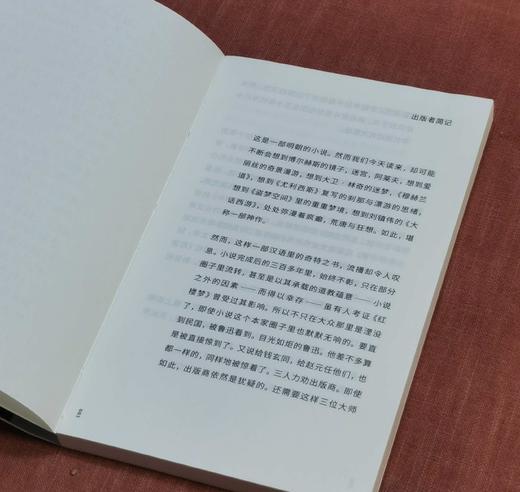 出版者简记
这是一部明朝的小说。然而我们今天读来，却可能
不断会想到博尔赫斯的镜子，迷宫，阿莱夫，想到爱
丽丝的奇景漫游，想到大卫·林奇的迷梦，《穆赫兰
道》，想到《尤利西斯》复写的刹那与漂游的思绪，
想到《盗梦空间》里的重重梦境，想到刘镇伟的《大
话西游》，处处弥漫着疯癫，荒唐与狂想。如此，堪
称一部神作。
然而，这样一部汉语里的奇特之书，流播却令人叹
息。小说完成后的三百多年里，始终不彰，只在部分
圈子里流转，甚至是以其承载的道教蕴意——小说
之外的因素——而得以幸存——虽有人考证《红
楼梦》曾受过其影响。所以不只在大众那里是湮没
了，即使小说这个本家圈子里也默默无响的。要直
到民国，被鲁迅看到。目光如炬的鲁迅。他差不多算
是被直接惊到了。又说给钱玄同，给赵元任他们，也
都一样的，同样地被惊着了。三人力劝出版商。即使
如此，出版商依然是犹疑的。还需要这样三位大师